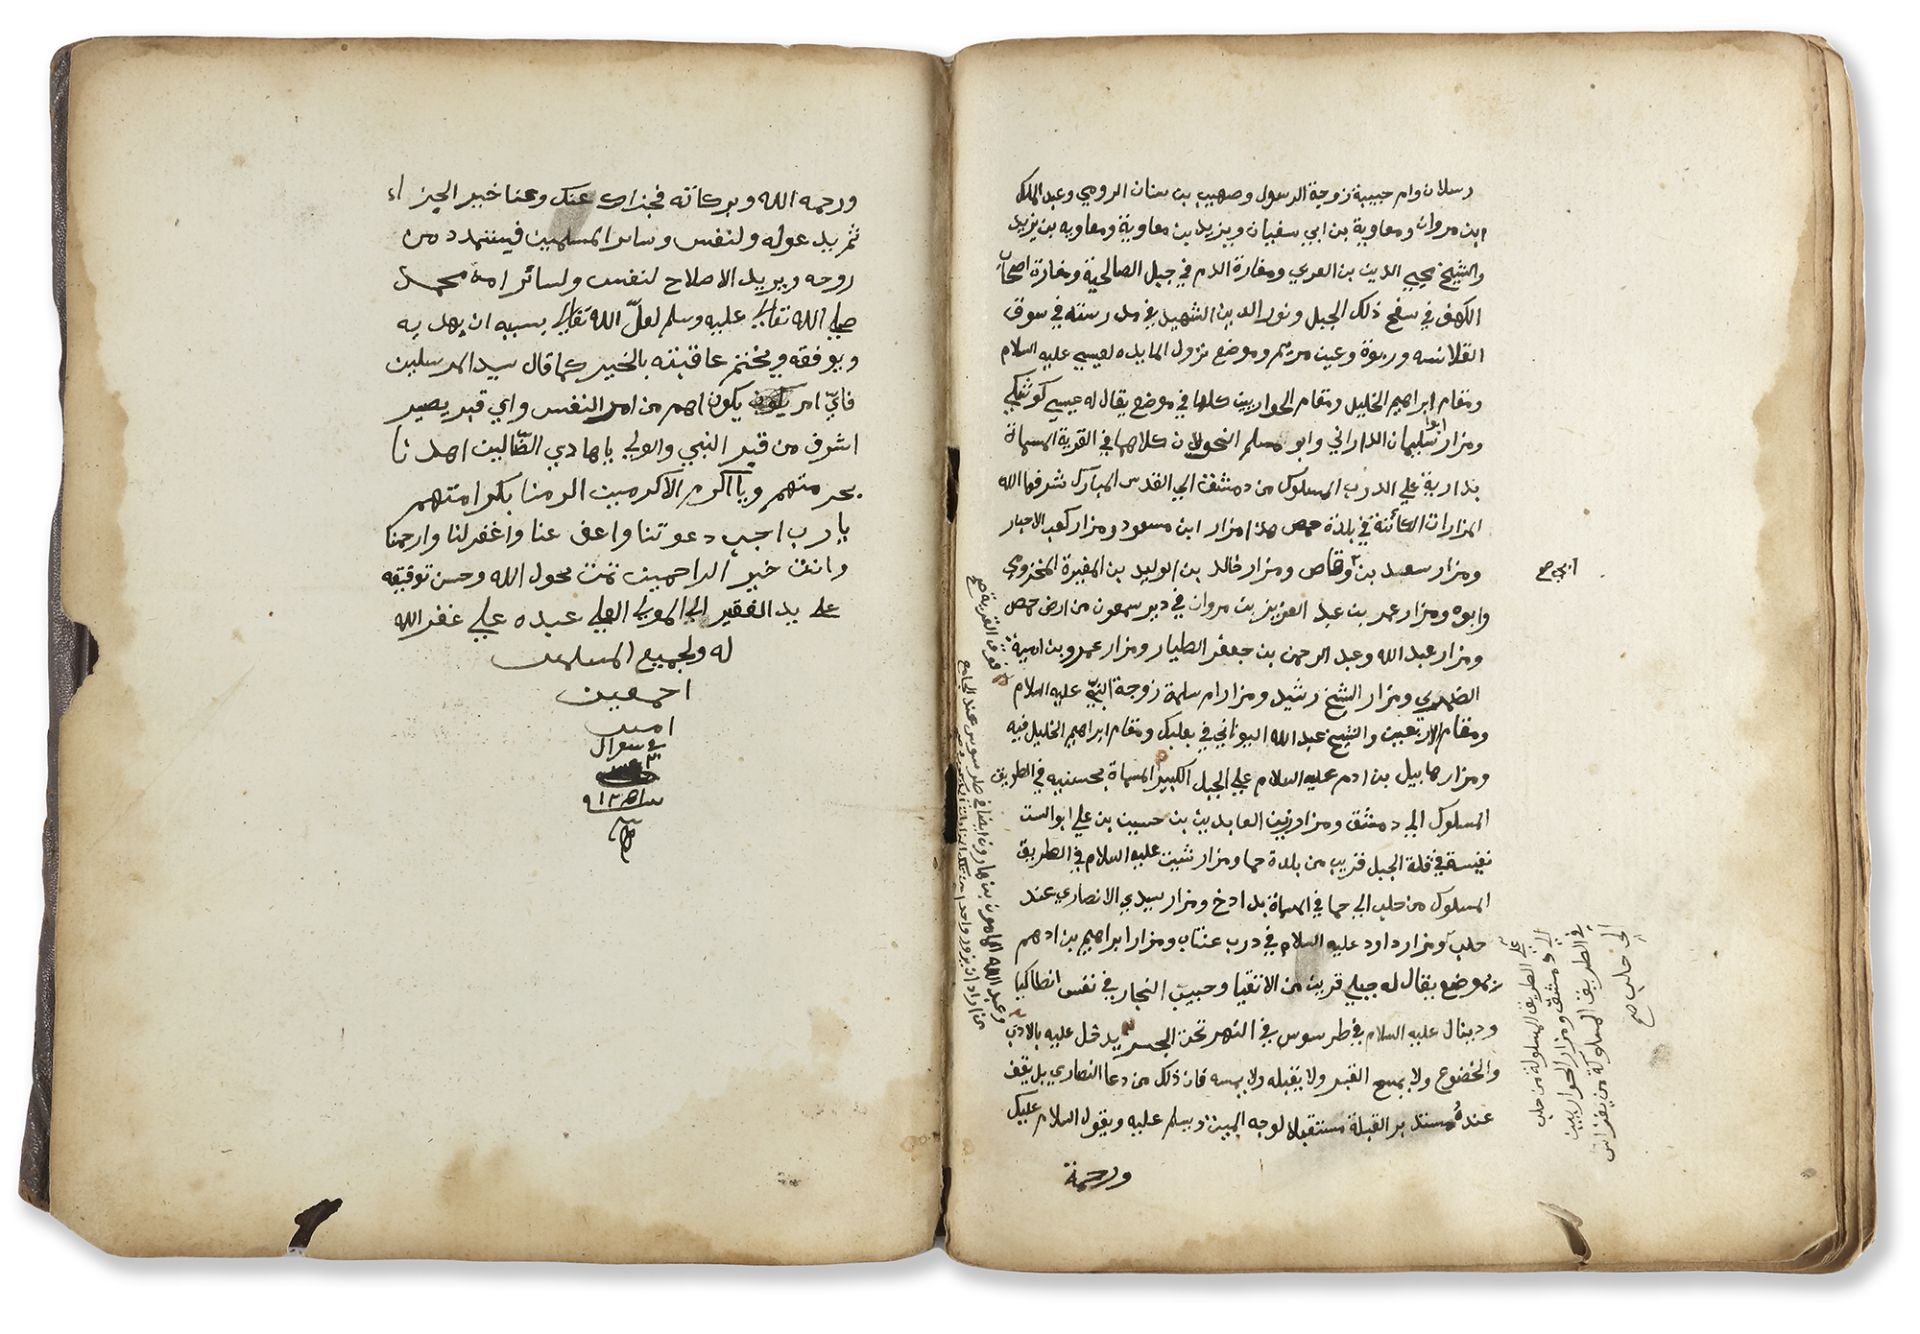 رسلان وام حبيبة زوجة الرسول وصهيب بن سنان الرومي وعبد الملك
ابن مروان ومعاوية بن ابي سفيان ويزيد بن معاوية ومعاويه بن يزيد
والشيخ محيي الدين بن العربي ومغارة الدم في جبل الصالحية ومغارة اصحاب
الكهف في سفح ذلك الجبل ونور الدين الشهيد في مدرسته في سوق
القلانسه وربوة وعين مريم وموضع نزول المايده لعيسى عليه السلام
ومقام ابراهيم الخليل ومقام الحواريين كلها في موضع يقال له عيسى
ومزار ابو سليمان الداراني وابو مسلم الخولاني كلاهما في القرية المسماة
بدارية على الدرب المسلوك من دمشق الى القدس المبارك شرفها الله
المزارات الكائنة في بلدة حمص هذا مزار ابن مسعود ومزار كعب الاحبار
ومزار سعيد بن وقاص ومزار خالد بن الوليد بن المغيرة المخزومي
ابي صح
وابوه ومزار عمر بن عبد العزيز بن مروان في دير سمعون من ارض حمص
ومزار عبد الله وعبد الرحمن بن جعفر الطيار ومزار عمرو بن امية
الضمري ومزار الشيخ رشيد ومزار ام سلمة زوجة النبي عليه السلام
ومقام الاربعين والشيخ عبد الله اليوناني في بعلبك ومقام ابراهيم الخليل فيه
ومزار هابيل بن ادم عليه السلام على الجبل الكبير المسماة بحسنيه في الطريق
المسلوك الى دمشق ومزار زين العابدين بن حسين بن علي ابو الست
نفيسة في قلة الجبل قريب من بلدة حما ومزار شيت عليه السلام في الطريق
المسلوك من حلب الى حما في المسماة بدادخ ومزار سيدي الانصاري عند
حلب ومزار داود عليه السلام في درب عنتاب ومزار ابراهيم بن ادهم
بموضع يقال له جبلي قريب من الاتقيا وحبيب النجار في نفس انطاكيا
ودينال عليه السلام في طرسوس في النهر تحت الجسر يدخل عليه بالادب
والخضوع ولا يمسح القبر ولا يقبله ولا يمسه فان ذلك من دعا النصارى بل يقف
عنده مستدبر القبلة مستقبلا لوجه الميت ويسلم عليه ويقول السلام عليك
ورحمة
على الطريق المسلوك من حلب
الى دمشق ومزار الحواريين
في الطريق المسلوكة من
الى حلب صح
فوق القرية صح
وعبد الله المامون بن هارون ايضا في طرسوس عند الجامع
من اراد ان يزور واحد من تلك المزارات
ورحمه الله وبركاته فجزاك عنك وعنا خير الجزاء
ثم يدعو له ولنفس وسائر المسلمين فيستمدد من
روحه ويريد الاصلاح لنفس ولسائر امة محمد
صلى الله تعالى عليه وسلم لعل الله تعالى بسببه ان يهديه
ويوفقه ويختم عاقبته بالخير كما قال سيد المرسلين
فاي امر يكون اهم من امر النفس واي قبر يصير
اشرف من قبر النبي والولي يا هادي الضالين اهدنا
بحرمتهم ويا اكرم الاكرمين الرمنا بكرامتهم
يا رب اجب دعوتنا واعف عنا واغفر لنا وارحمنا
وانت خير الراحمين تمت بحول الله وحسن توفيقه
على يد الفقير الى المولى العلي عبده علي غفر الله
له ولجميع المسلمين
اجمعين
امين
في شوال